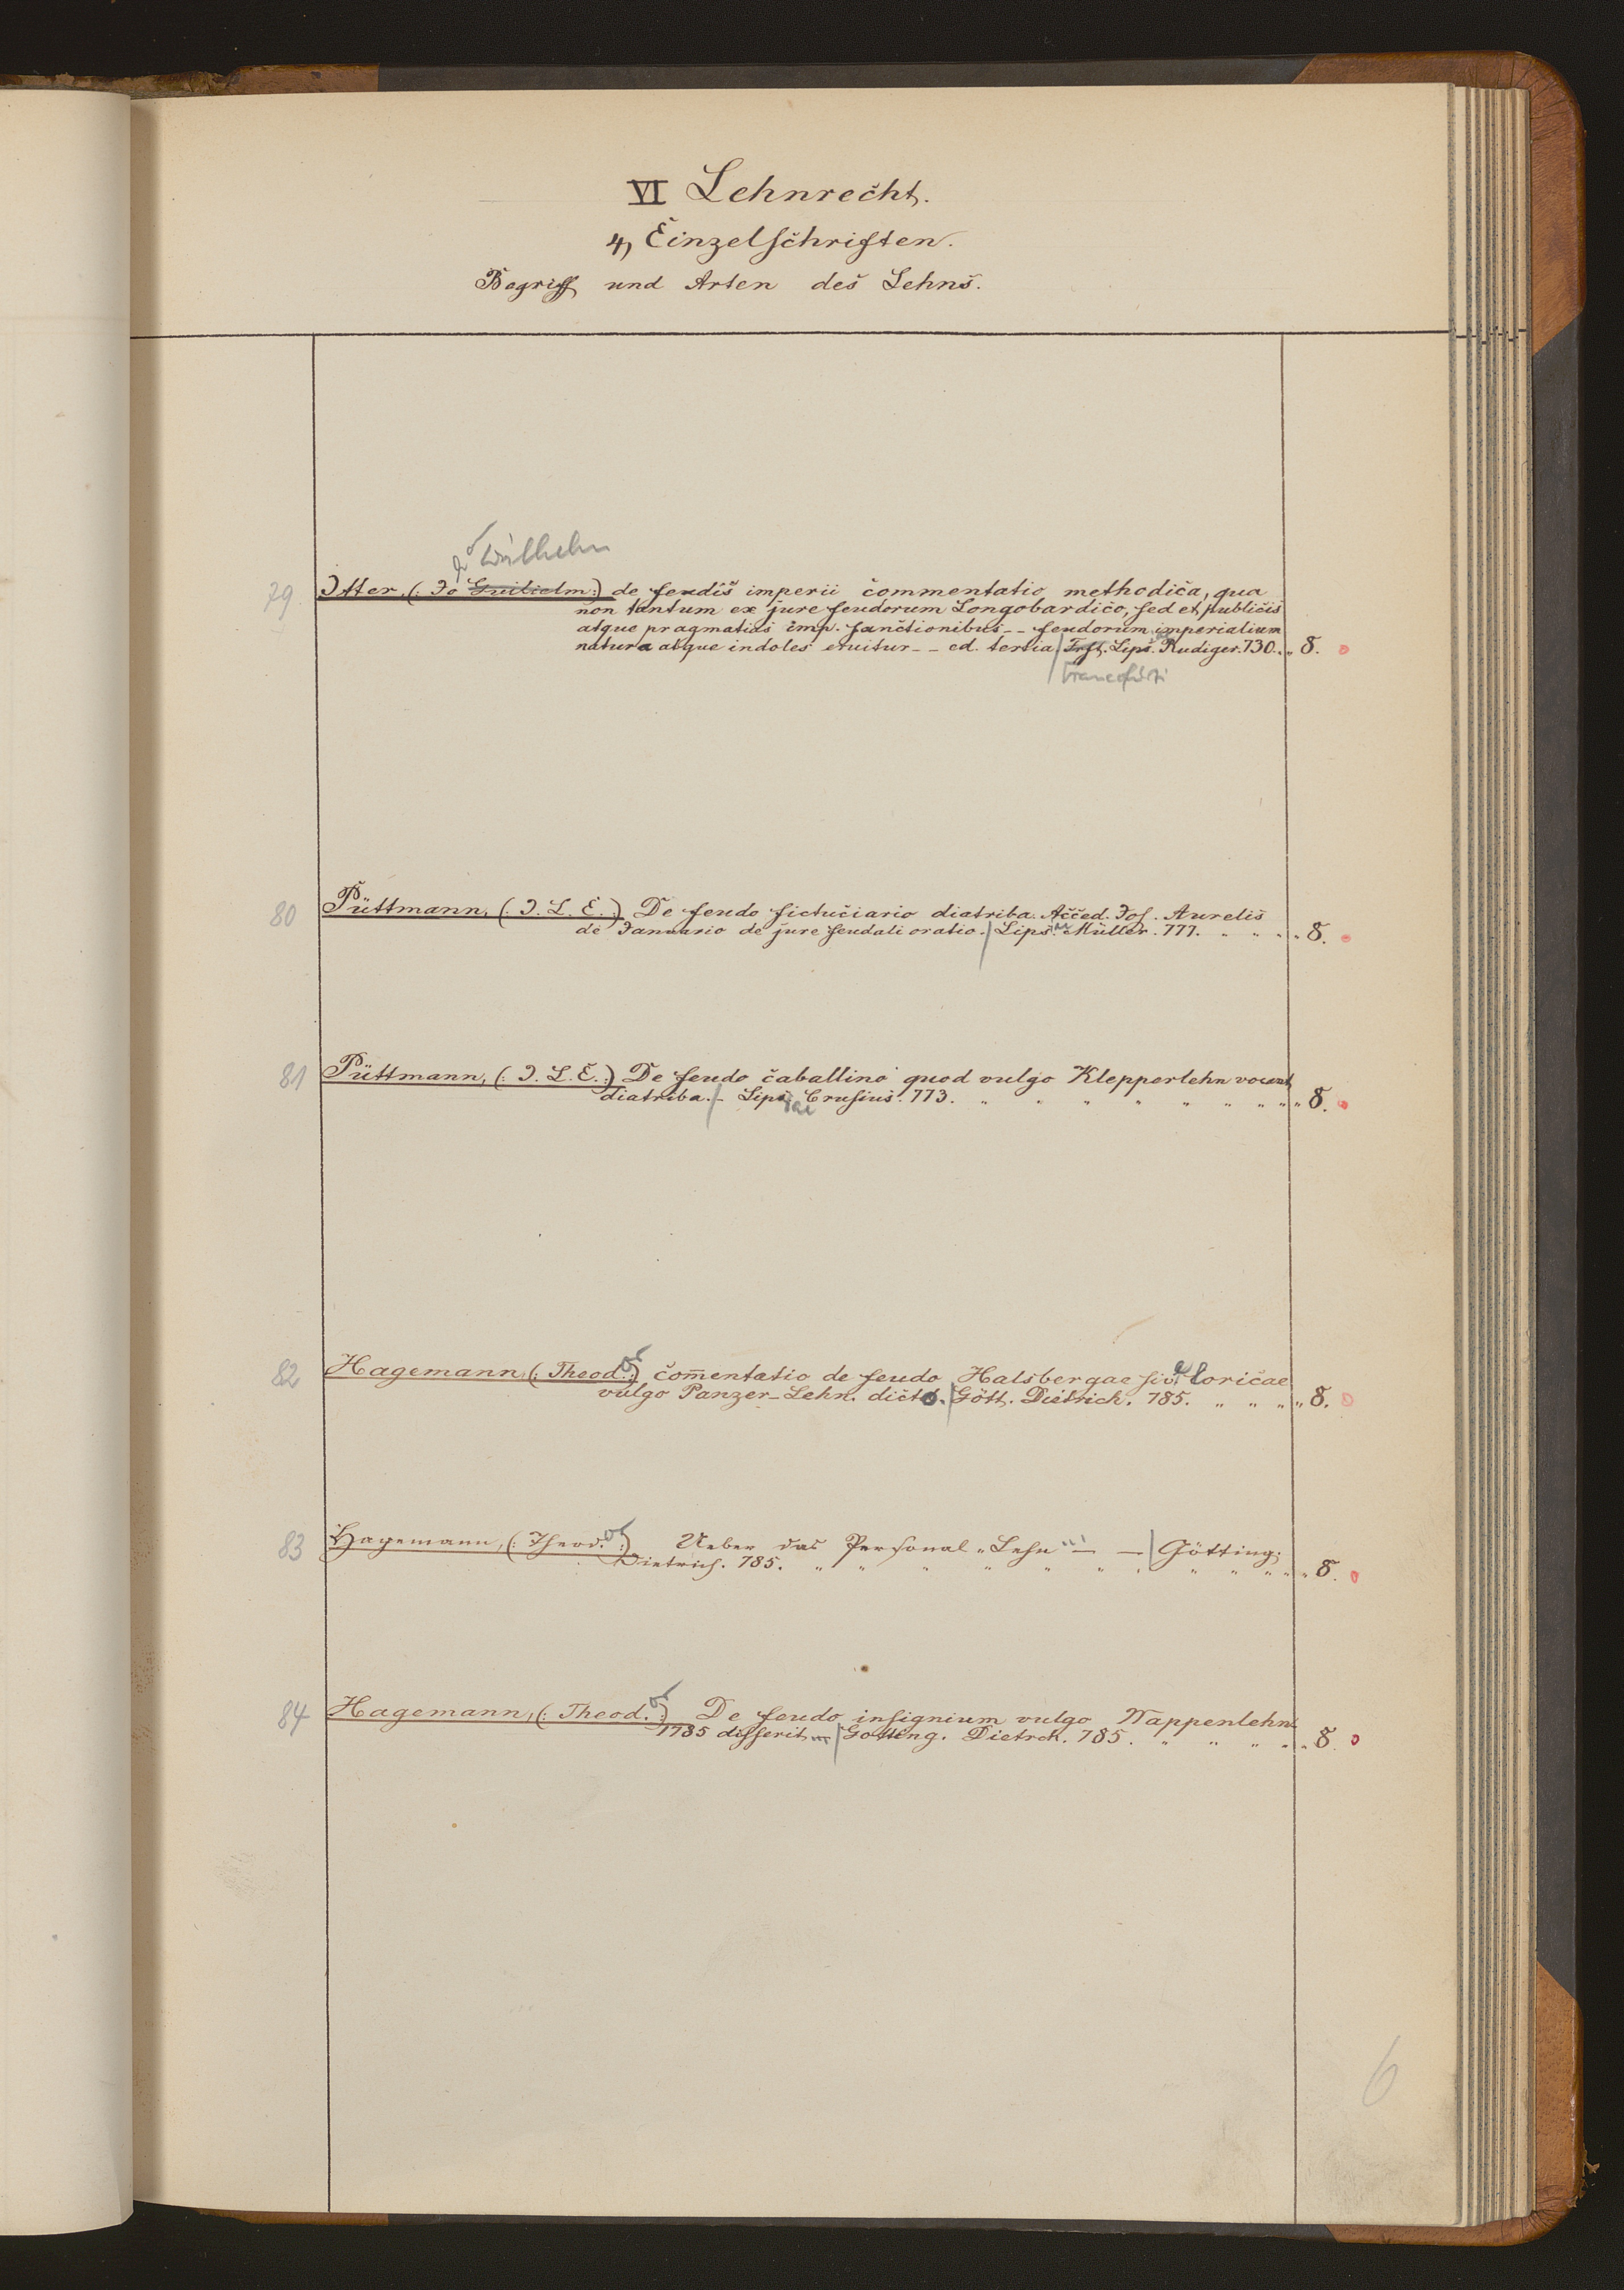 VI Lehnrecht.
4, Einzelschriften.
Begriff und Arten des Lehns.
Wilhelm
79 Itter, (: Jo Guilielm:) de feudis imperii commentatio methodica, qua
non tantum ex jure feudorum Longobardico, sed et publicis
atque pragmaticis imp. sanctionibus -- feudorum imperialium
natura atque indoles eruitur -- ed. tertia Frft. Lips. Rudiger. 730. " 8.
Francofurti
80 Püttmann, (: J. L. E. :) De feudo fictuciario diatriba. Acced. Jos. Aurelis
de Januario de jure feudali oratio. Lips. Müller. 777. " " " " 8.
81 Püttmann, (: J. L. E. :) De feudo caballino quod vulgo Klepperlehn vocant
diatriba. - Lips. iae Crusius. 773. " " " " " " " " " 8.
82 Hagemann, (: Theod. :) com̄entatio de feudo Halsbergae sive loricae
vulgo Panzer-Lehn. dicto. Gött. Dietrich. 785. " " " " 8.
83 Hagemann, (: Theod. :) Ueber das Personal-Lehn — — Götting.
Dietrich. 785. " " " " " " " " " " " 8.
84 Hagemann, (: Theod. :) De feudo insignium vulgo Wappenlehn
1785 disserit Gotting. Dietrch. 785. " " " " 8.
6